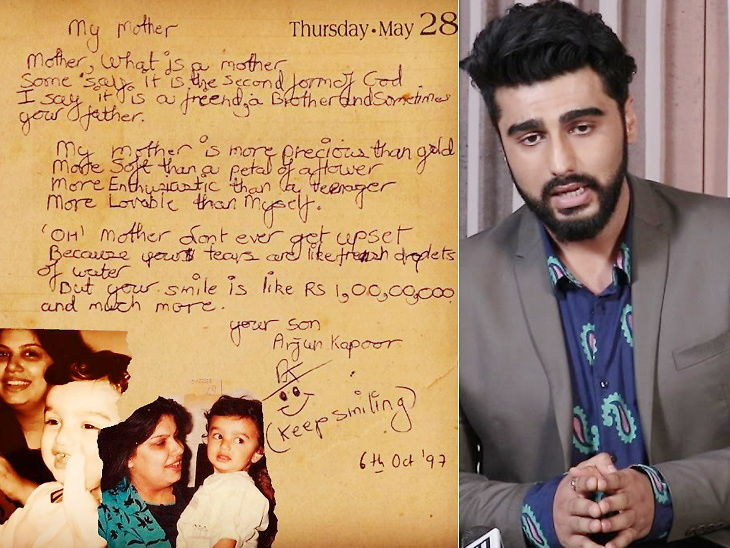 Thursday • May 28
My Mother
Mother, What is a mother
Some say it is the second form of God
I say it is a freend, a Brother and Sometimes
your father.
My mother is more precious than gold
More Soft than a petal of a flower
More Enthusiastic than a teenager
More Lovable than Myself.
'OH' Mother dont ever get upset
Because your tears are like fresh droplets
of water
But your smile is like RS 1,00,00,000
and much more.
your son
Arjun Kapoor
(Keep smiling)
6th Oct '97